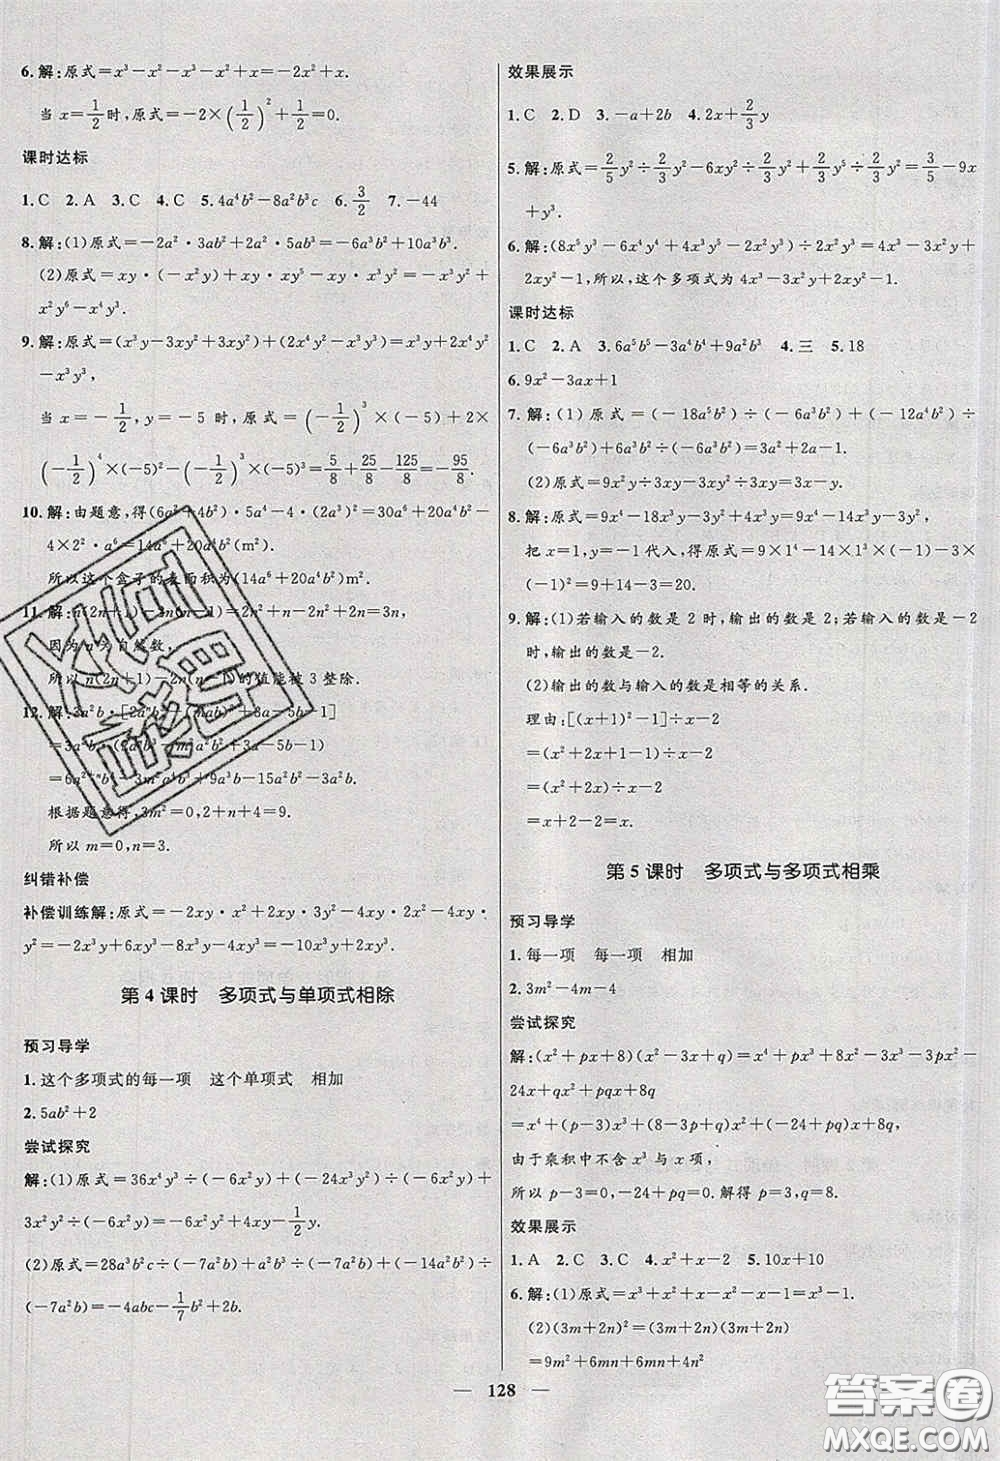 6.解:原式=x³-x²-x³-x²+x=-2x²+x.
当 x=1/2时,原式=-2×(1/2)²+1/2=0.
课时达标
1.C 2.A 3.C 4.C 5.4a⁴b²-8a²b³c 6.3/2 7.-44
8.解:(1)原式=-2a²·3ab²+2a²·5ab³=-6a³b²+10a³b³.
(2)原式=xy·(-x²y)+xy·xy⁵-xy·x²y²=-x³y²+
x²y⁶-x³y³.
9.解:原式=(x³y-3xy²+3xy²)+(2x⁴y²-x³y)=2x⁴y²
-x³y³,
当 x=-1/2,y=-5 时,原式=(-1/2)³×(-5)+2×
(-1/2)⁴×(-5)²-(-1/2)³×(-5)³=5/8+25/8-125/8=-95/8.
10.解:由题意,得(6a²+4b²)·5a⁴-4·(2a³)²=30a⁶+20a⁴b²-
4×2²·a⁶=14a⁶+20a⁴b²(m²).
所以这个盒子的表面积为(14a⁶+20a⁴b²)m².
11.解:n(2n+1)-2n(n-1)=2n²+n-2n²+2n=3n,
因为 n 为自然数,
所以 n(2n+1)-2n(n-1)的值能被 3 整除.
12.解:3a²b·[2aⁿb²-(mab)²+3a-5b-1]
=3a²b·(2aⁿb²-m²a²b²+3a-5b-1)
=6aⁿ⁺²b³-3m²a⁴b³+9a³b-15a²b²-3a²b.
根据题意得,3m²=0,2+n+4=9.
所以 m=0,n=3.
纠错补偿
补偿训练解:原式=-2xy·x²+2xy·3y²-4xy·2x²-4xy·
y²=-2x³y+6xy³-8x³y-4xy³=-10x³y+2xy³.
第 4 课时 多项式与单项式相除
预习导学
1.这个多项式的每一项 这个单项式 相加
2.5ab²+2
尝试探究
解:(1)原式=36x⁴y³÷(-6x²y)+(-24x³y²)÷(-6x²y)+
3x²y²÷(-6x²y)=-6x²y²+4xy-1/2y.
(2)原式=28a³b²c÷(-7a²b)+a²b³÷(-7a²b)+(-14a²b²)÷
(-7a²b)=-4abc-1/7b²+2b.
效果展示
1.C 2.D 3.-a+2b 4.2x+2/3y
5.解:原式=2/5y²÷2/3y²-6xy²÷2/3y²+2/3y⁵÷2/3y²=3/5-9x
+y³.
6.解:(8x⁵y³-6x⁴y⁴+4x³y-2x²y)÷2x²y=4x³-3x²y+
2xy-1.所以,这个多项式为 4x³-3x²y+2xy-1.
课时达标
1.C 2.A 3.6a⁵b⁵-3a⁴b⁴+9a²b³ 4.三 5.18
6.9x²-3ax+1
7.解:(1)原式=(-18a⁵b²)÷(-6a³b²)+(-12a⁴b²)÷
(-6a³b²)+6a³b²÷(-6a³b²)=3a²+2a-1.
(2)原式=9x²y÷3xy-6xy²÷3xy=3x-2y.
8.解:原式=9x⁴-18x³y-3y²+4x³y=9x⁴-14x³y-3y²,
把 x=1,y=-1 代入,得原式=9×1⁴-14×1³×(-1)-3×
(-1)²=9+14-3=20.
9.解:(1)若输入的数是 2 时,输出的数是 2;若输入的数是-2
时,输出的数是-2.
(2)输出的数与输入的数是相等的关系.
理由:[(x+1)²-1]÷x-2
=(x²+2x)÷x-2
=(x²÷x+2x÷x)-2
=x+2-2=x.
第 5 课时 多项式与多项式相乘
预习导学
1.每一项 每一项 相加
2.3m²-4m-4
尝试探究
解:(x²+px+8)(x²-3x+q)=x⁴+px³+8x²-3x³-3px²-
24x+qx²+pqx+8q
=x⁴+(p-3)x³+(8-3p+q)x²+(-24+pq)x+8q.
由于乘积中不含有 x³ 与 x 项,
所以 p-3=0,-24+pq=0.解得 p=3,q=8.
效果展示
1.A 2.C 3.C 4.x²+x-2 5.10x+10
6.解:(1)原式=x³+x²+x-x²-x-1=x³-1.
(2)(3m+2n)²=(3m+2n)(3m+2n)
=9m²+6mn+6mn+4n²=9m²+12mn+4n².
128
答案圈
MXQE.COM